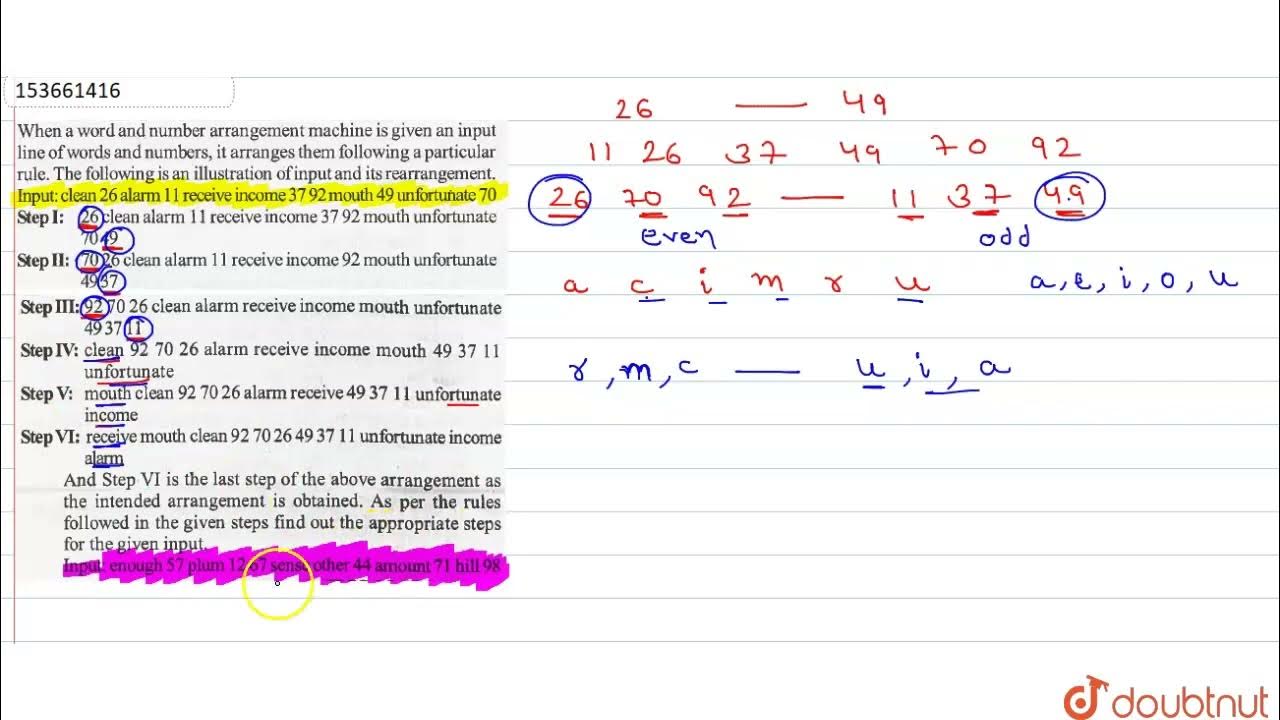 153661416
When a word and number arrangement machine is given an input
line of words and numbers, it arranges them following a particular
rule. The following is an illustration of input and its rearrangement.
Input: clean 26 alarm 11 receive income 37 92 mouth 49 unfortunate 70
Step I: 26 clean alarm 11 receive income 37 92 mouth unfortunate
70 49
Step II: 70 26 clean alarm 11 receive income 92 mouth unfortunate
49 37
Step III: 92 70 26 clean alarm receive income mouth unfortunate
49 37 11
Step IV: clean 92 70 26 alarm receive income mouth 49 37 11
unfortunate
Step V: mouth clean 92 70 26 alarm receive 49 37 11 unfortunate
income
Step VI: receive mouth clean 92 70 26 49 37 11 unfortunate income
alarm
And Step VI is the last step of the above arrangement as
the intended arrangement is obtained. As per the rules
followed in the given steps find out the appropriate steps
for the given input.
Input: enough 57 plum 12 67 sense other 44 amount 71 hill 98
26 — 49
11 26 37 49 70 92
26 70 92 — 11 37 49
even odd
a c i m r u a, e, i, o, u
r, m, c — u, i, a
doubtnut